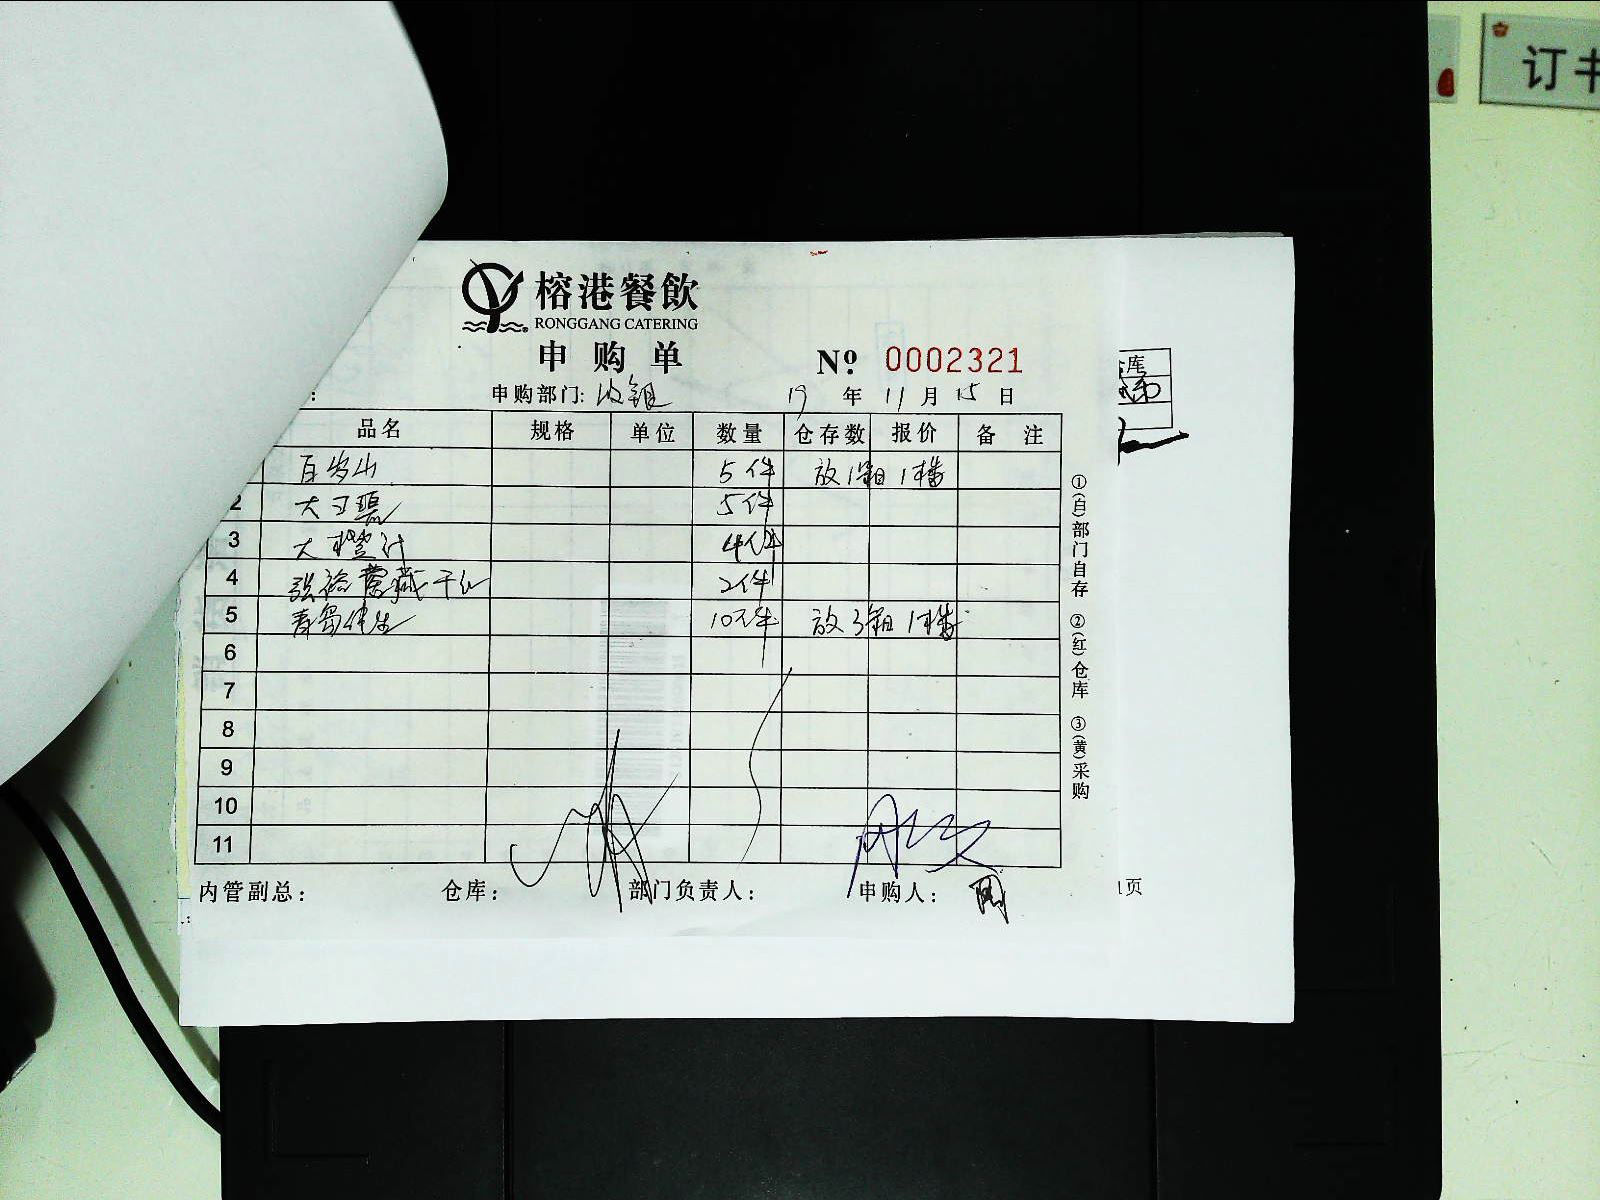 订书
榕港餐飲
RONGGANG CATERING
申购单 No 0002321
: 申购部门: 收银 19 年 11 月 15 日
品名 规格 单位 数量 仓存数 报价 备 注
百岁山 5件 放1箱1楼
2 大卫碧 5件
3 大橙汁 4件
4 张裕窖藏干红 2件
5 青岛纯生 10件 放3箱1楼
6
7
8
9
10
11
内管副总: 仓库: 部门负责人: 申购人:
①(白)部门自存 ②(红)仓库 ③(黄)采购
库
1页